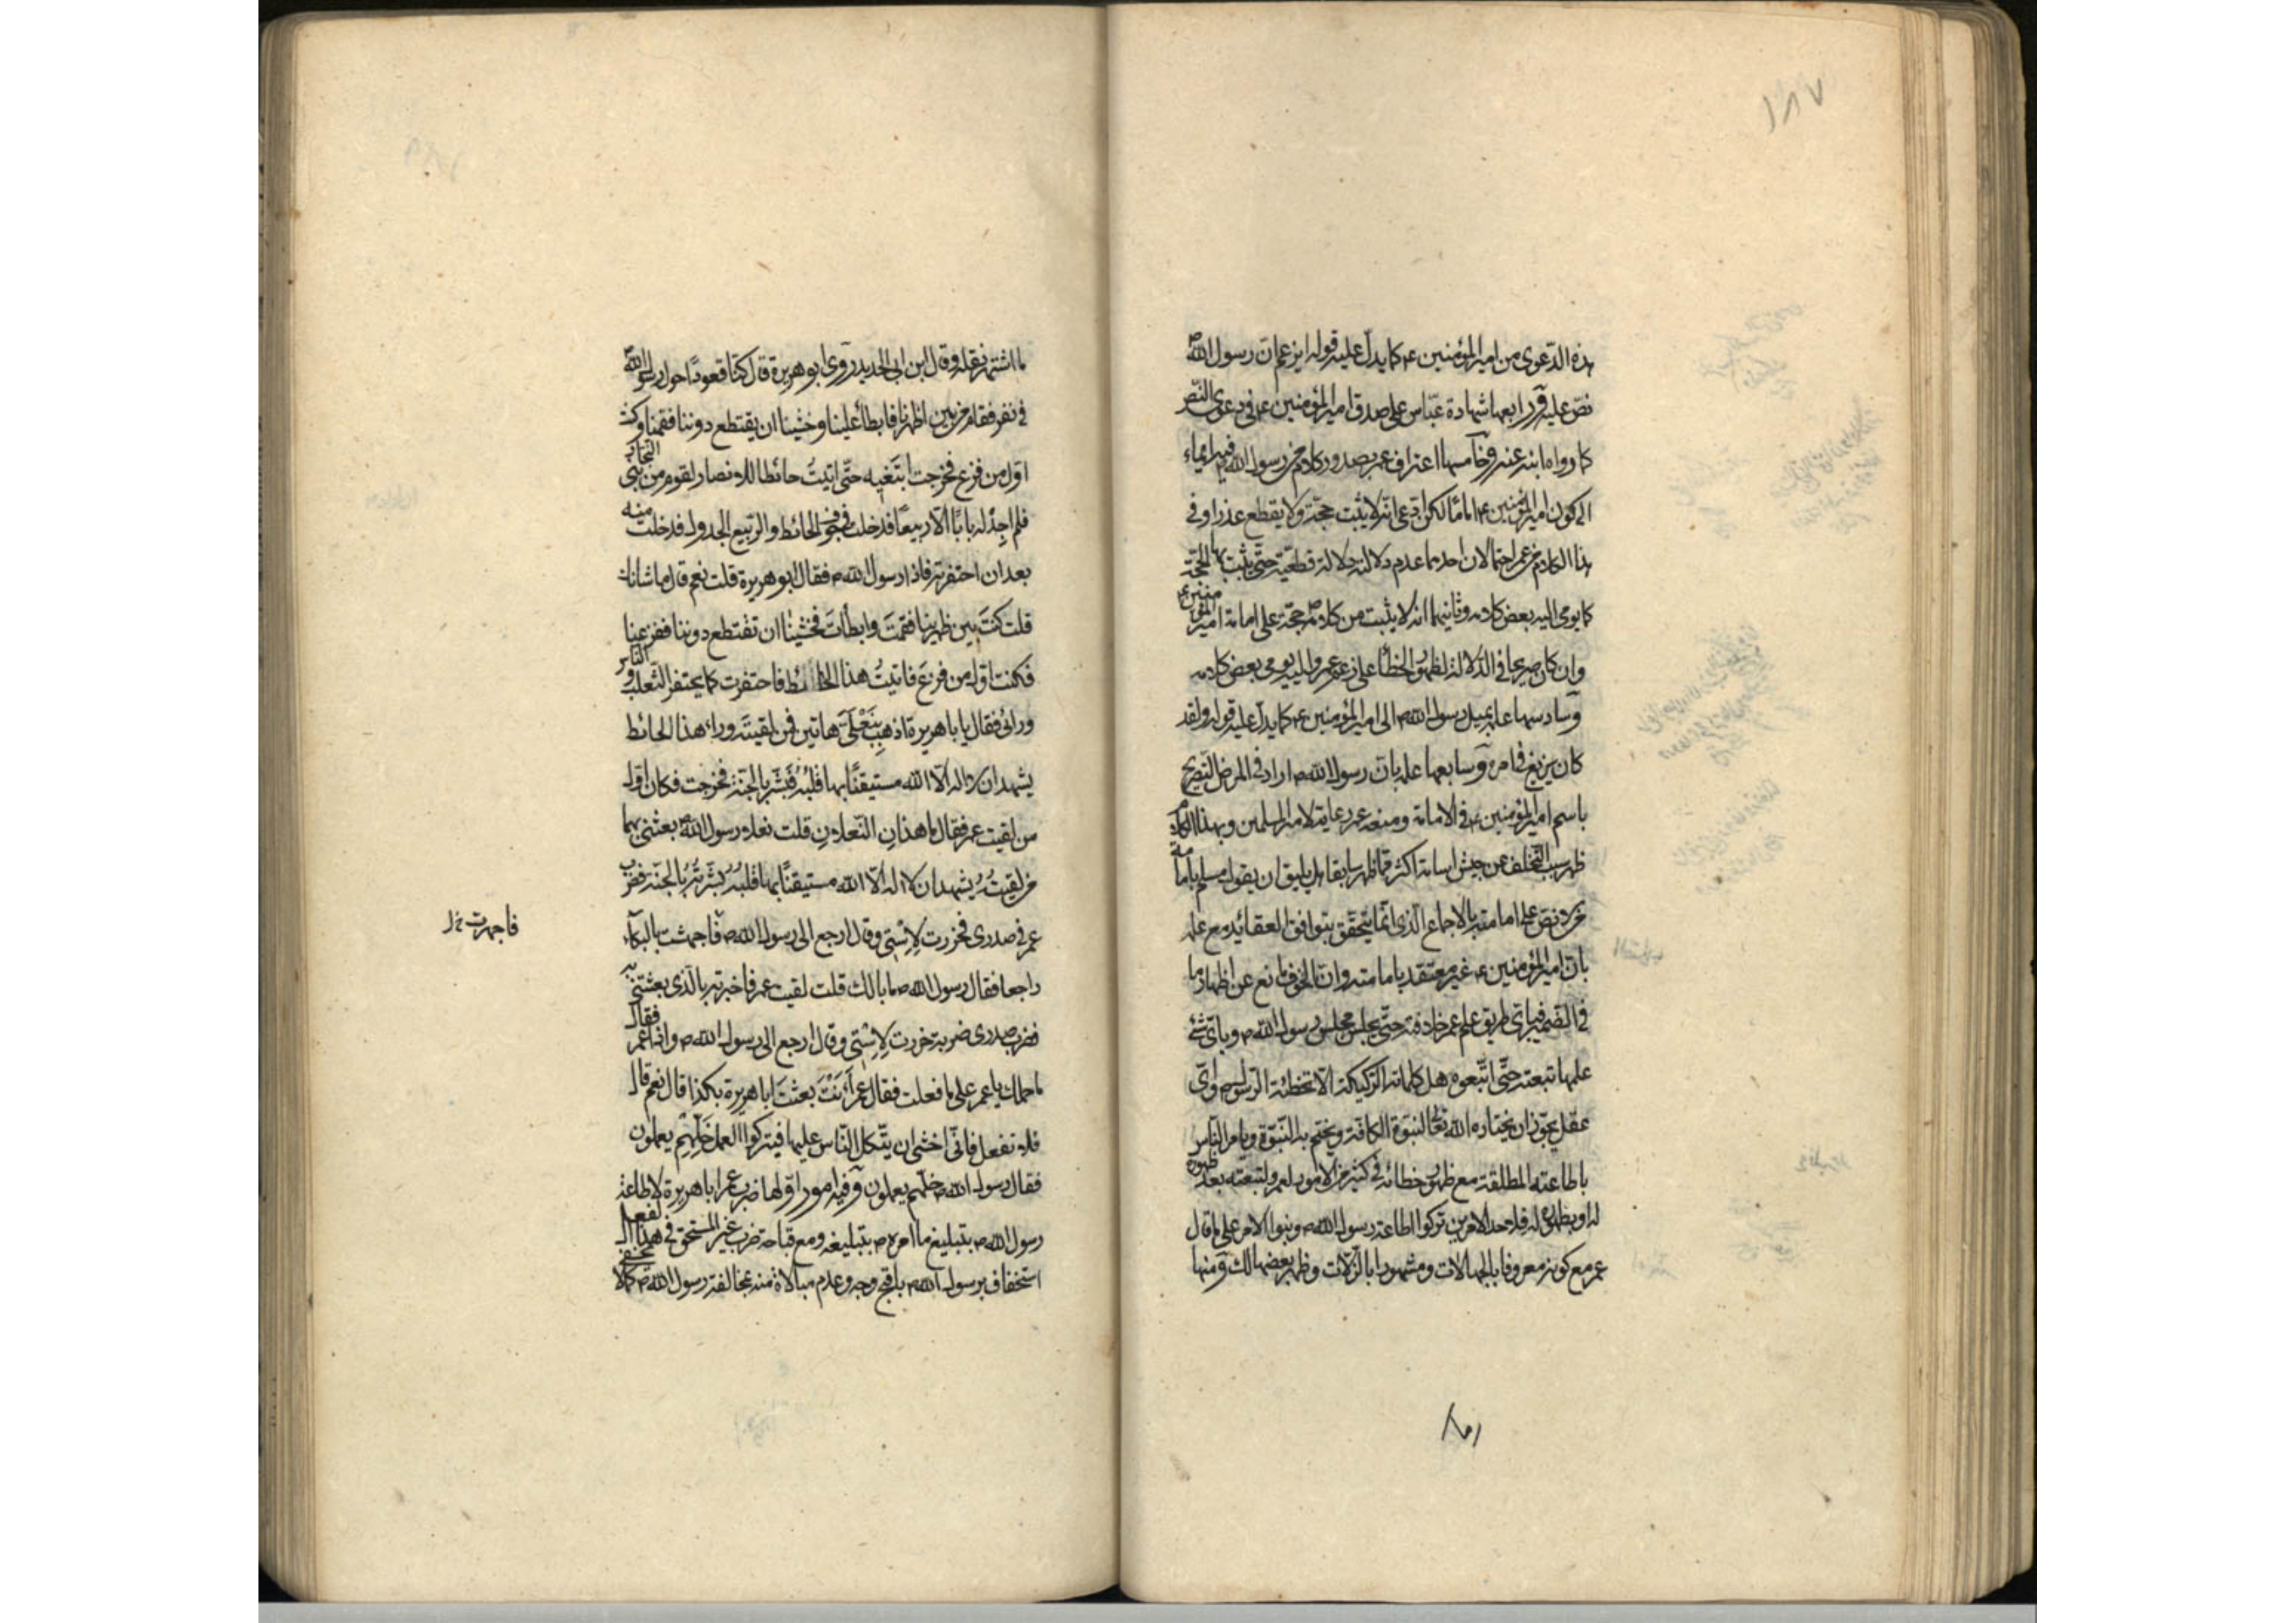 ١٨٧
هذه الدّعوى من امير المؤمنين ع كما يدلّ عليه قوله ايزعم انّ رسول اللّه ص
نصّ عليه ورابعها شهادة عبّاس على صدق امير المؤمنين ع فى دعوى النّص
كما رواه ابنه عنه وخامسها اعتراف عمر بصدور كلام من رسول الله ص فيه ايماء
الى كون امير المؤمنين ع اماما لكن ادّعى انّه لا يثبت حجّة ولا يقطع عذرا وفى
هذا الكلام من عمر احتمالان احدهما عدم دلالته دلالة قطعيّة حتّى يثبت بها الحجّة
كما يومى اليه بعض كلامه وثانيهما انه لا يثبت من كلامه ص حجّة على امامة امير المؤمنين ع
وان كان صريحا فى الدّلالة لظهور الخطأ على زعم عمر واليه يومى بعض كلامه
وسادسها علمه بميل رسول الله ص الى امير المؤمنين ع كما يدلّ عليه قوله ولقد
كان يربع فى امره وسابعها علمه بانّ رسول الله ص اراد فى المرض التّصريح
باسم امير المؤمنين ع فى الامامة ومنعه عمر رعاية لامر المسلمين وبهذا الكلام
ظهر سبب التّخلف عن جيش اسامة اكثر ممّا ظهر سابقا هل يليق ان يقول مسلم بامامة
من لا نصّ على امامته بالاجماع الّذى انّما يتحقّق بتوافق العقائد مع علمه
بانّ امير المؤمنين ع غير معتقد بامامته وانّ الخوف مانع عن اظهار ما
فى الضّمير فباىّ طريق علم عمر خلافته حتّى يجلس مجلس رسول الله ص وباىّ شئ
علمها تبعته حتّى اتّبعوه هل كلماته الرّكيكة الّا تخطئة الرّسول ص واىّ
عقل يجوّز ان يختاره الله تعالى لنبوّة الكافّة ويختم به النّبوّة ويامر النّاس
باطاعته المطلقة مع ظهور خطائه فى كثير من الامور لعمر ولتبعته بعد ظهوره
له او بظهوره له فلاحد الامرين تركوا اطاعة رسول الله ص وبنوا الامر على ما قال
عمر مع كونه معروفا بالجهالات ومشهورا بالزّلات وظهر بعضها لك ومنها
ما اشتهر نقله وقال ابن ابى الحديد روى ابو هريرة قال كنّا قعودًا حول رسول اللّه ص
فى نفر فقام من بين اظهرنا فابطأ علينا وخشينا ان يقتطع دوننا فقمنا وكنت
اوّل من فزع فخرجت ابتغيه حتّى اتيتُ حائطا للانصار لقوم من بنى النّجار
فلم اجد له بابًا الّا ربيعًا فدخلت فى جوف الحائط والرّبيع الجدول فدخلت منه
بعد ان احتفرته فاذا رسول الله ص فقال ابو هريرة قلت نعم قال ما شانك
قلت كنتَ بين ظهرينا فقمتَ وابطأتَ فخشينا ان تقتطع دوننا ففزعنا
فكنت اوّل من فزعَ فاتيتُ هذا الحائط فاحتفرت كما يحتفر الثّعلب والنّاس
ورائى فقال يابا هريرة اذهب بِنَعْلَىَّ هاتين فمن لقيتَه وراء هذا الحائط
يشهد ان لا اله الّا الله مستيقنًا بها قلبُه فبشّره بالجنّة فخرجت فكان اوّل
من لقيت عمر فقال ما هذان النّعلانِ قلت نعلا رسول الله ص بعثنى بهما
من لقيتُه يشهد ان لا اله الّا الله مستيقنًا بها قلبُه بشّرتُه بالجنّة فضرب
عمر فى صدرى فخررت لاِسْتى وقال ارجع الى رسول الله ص فاجهشت بالبكآء
راجعا فقال رسول الله ص ما بالك قلت لقيت عمر فاخبرته بالّذى بعثتنى به
فضرب صدرى ضربة خررت لاِسْتى وقال ارجع الى رسول الله ص واذا عمر فقال
ما حملك يا عمر على ما فعلت فقال عمر أَنْتَ بعثتَ ابا هريرة بكذا قال نعم قال
فلا تفعل فانّى اخشى ان يتّكل النّاس عليها فيتركوا العمل خَلِّهِم يعملون
فقال رسول الله ص خلّهم يعملون وفيه امور اوّلها ضرب عمر ابا هريرة لاطاعة
رسول الله ص بتبليغ ما امره ص بتبليغه ومع قباحة ضرب غير المستحق فى هذا الفعل
استخفاف برسول الله ص باقبح وجه وعدم مبالاة منه بمخالفة رسول الله ص كما لا يخفى
فاجهرت خ ل